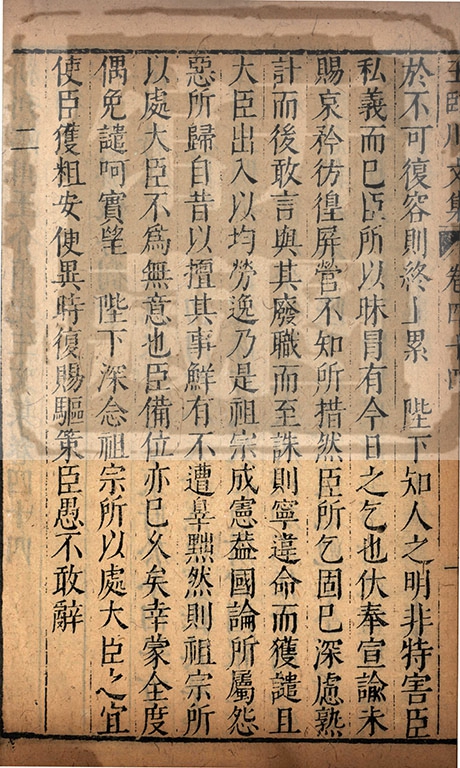 王臨川文集 卷四十四
於不可復容則終上累 陛下知人之明非特害臣
私義而已臣所以昧冒有今日之乞也伏奉宣諭未
賜哀矜彷徨屏營不知所措然臣所乞固已深慮熟
計而後敢言與其廢職而至誅則寧違命而獲譴且
大臣出入以均勞逸乃是祖宗成憲葢國論所屬怨
惡所歸自昔以擅其事鮮有不遭辠黜然則祖宗所
以處大臣不為無意也臣備位亦已久矣幸蒙全度
偶免譴呵實望 陛下深念祖宗所以處大臣之宜
使臣獲粗安便異時復賜驅策臣愚不敢辭
二